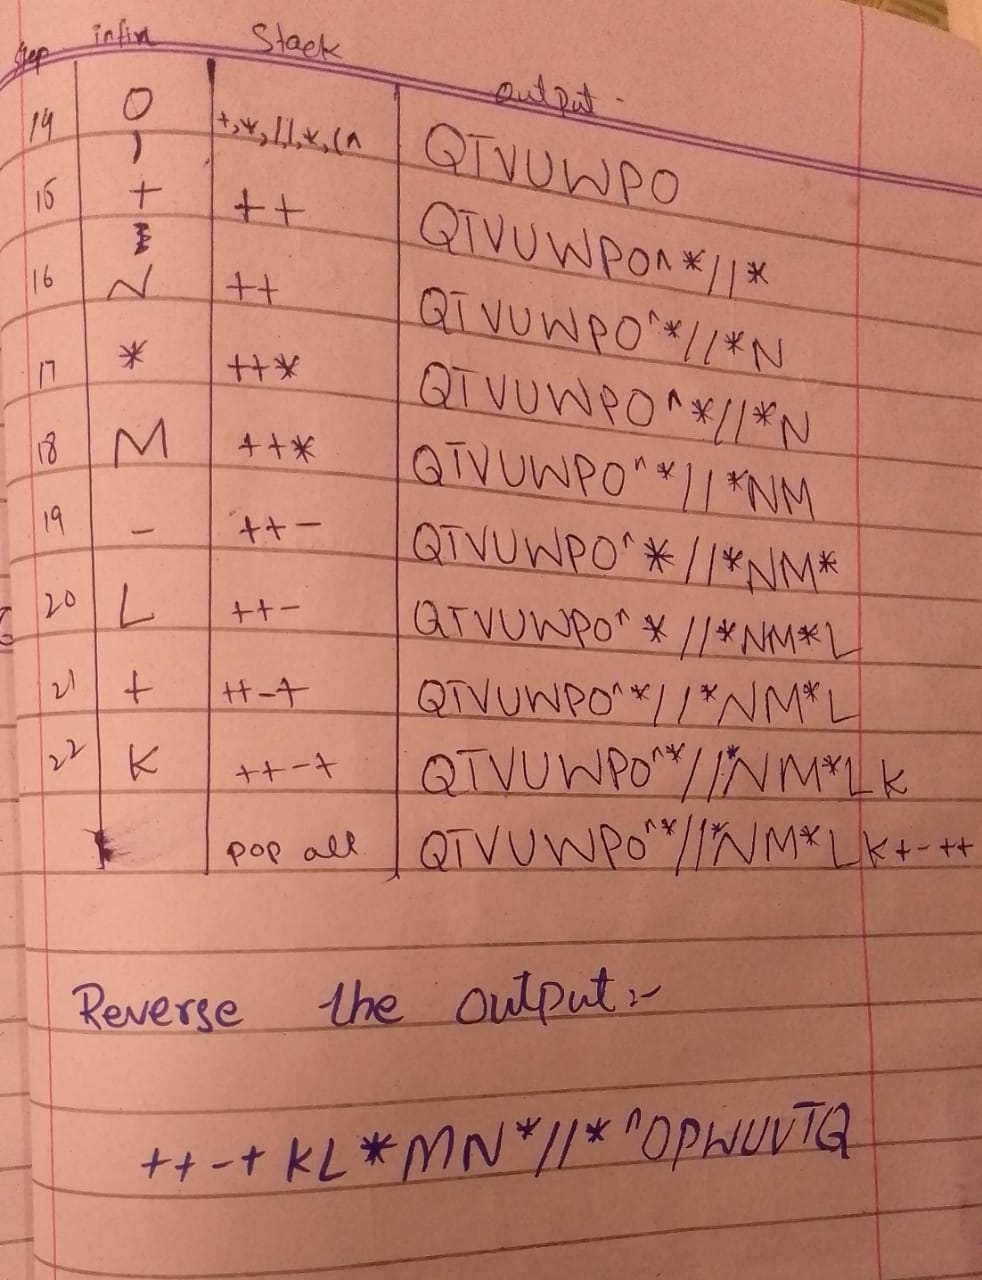 Step infix Stack output -
14 O +,*,//,*,(^ QTVUWPO
)
15 + ++ QTVUWPO^*//*
16 N ++ QTVUWPO^*//*N
17 * ++* QTVUWPO^*//*N
18 M ++* QTVUWPO^*//*NM
19 - ++- QTVUWPO^*//*NM*
20 L ++- QTVUWPO^*//*NM*L
21 + ++-+ QTVUWPO^*//*NM*L
22 K ++-+ QTVUWPO^*//*NM*LK
pop all QTVUWPO^*//*NM*LK+-++
Reverse the output:-
++-+KL*MN*//*^OPWUVTQ